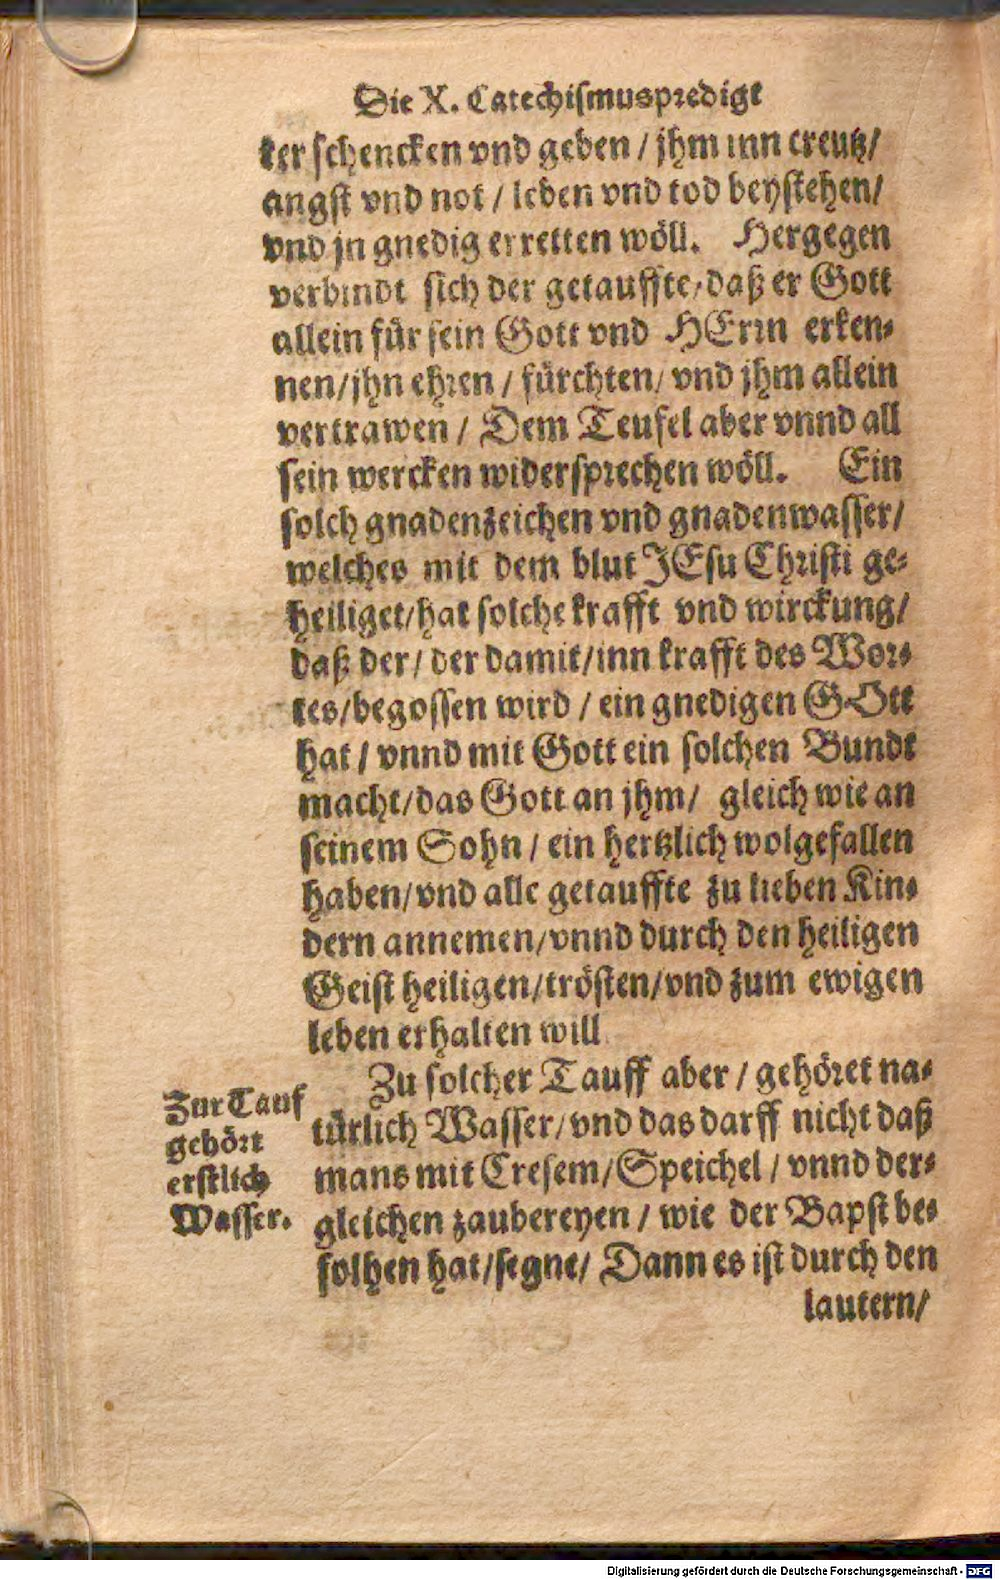 Die X. Catechismuspredigt
ter schencken vnd geben / jhm inn creutz /
angst vnd not / leben vnd tod beystehen /
vnd jn gnedig erretten wöll. Hergegen
verbindt sich der getauffte / daß er Gott
allein für sein Gott vnd HErrn erken-
nen / jhn ehren / fürchten / vnd jhm allein
vertrawen / Dem Teufel aber vnnd all
sein wercken widersprechen wöll. Ein
solch gnadenzeichen vnd gnadenwasser /
welches mit dem blut JEsu Christi ge-
heiliget / hat solche krafft vnd wirckung /
daß der / der damit / inn krafft des Wor-
tes / begossen wird / ein gnedigen GOtt
hat / vnnd mit Gott ein solchen Bundt
macht / das Gott an jhm / gleich wie an
seinem Sohn / ein hertzlich wolgefallen
haben / vnd alle getauffte zu lieben Kin-
dern annemen / vnnd durch den heiligen
Geist heiligen / trösten / vnd zum ewigen
leben erhalten will
Zur Tauf
gehört
erstlich
Wasser.
Zu solcher Tauff aber / gehöret na-
türlich Wasser / vnd das darff nicht daß
mans mit Cresem / Speichel / vnnd der-
gleichen zaubereyen / wie der Bapst be-
folhen hat / segne / Dann es ist durch den
lautern /
Digitalisierung gefördert durch die Deutsche Forschungsgemeinschaft - DFG